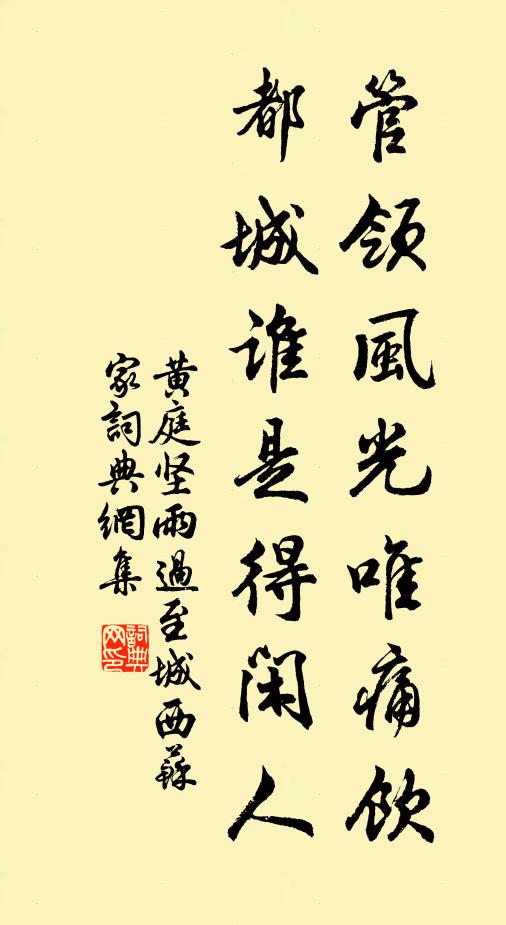 管領風光唯痛飲
都城誰是得閑人
黄庭坚雨過至城西蘇
家詞典網集
詞典网印